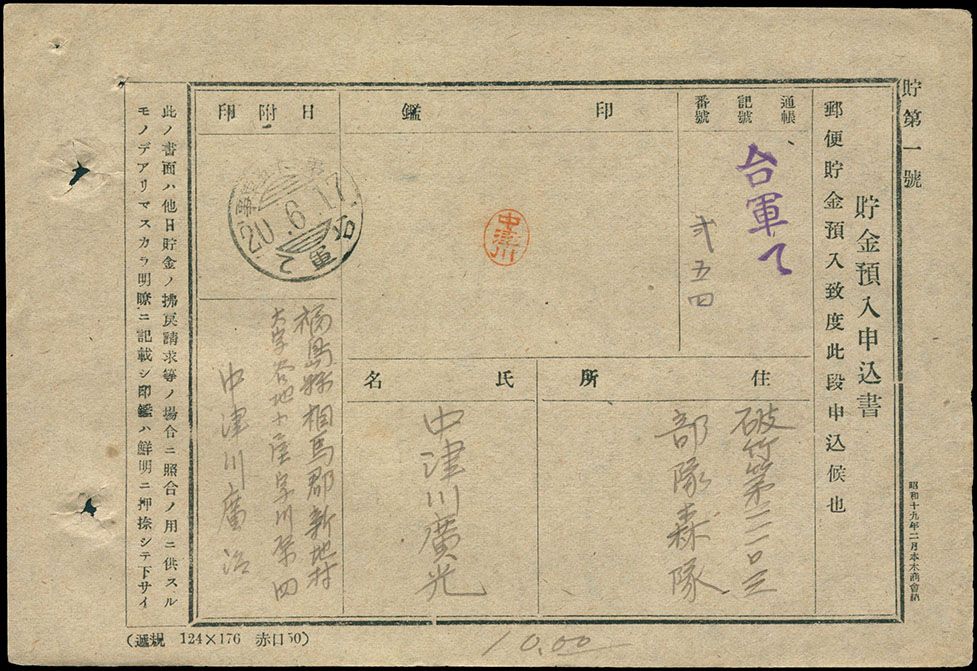 貯第一號
貯金預入申込書
郵便貯金預入致度此段申込候也
昭和十九年二月
通帳
記號
番號
台軍て
弐五四
印鑑
中津川
日附印
20.6.17
台軍
住所
破竹第二二〇三
部隊森隊
氏名
中津川廣光
福島縣相馬郡新地村
大字谷地小屋字川原四
中津川廣治
此ノ書面ハ他日貯金ノ拂戻請求等ノ場合ニ照合ノ用ニ供スル
モノデアリマスカラ明瞭ニ記載シ印鑑ハ鮮明ニ押捺シテ下サイ
124×176 赤口50)
10.00